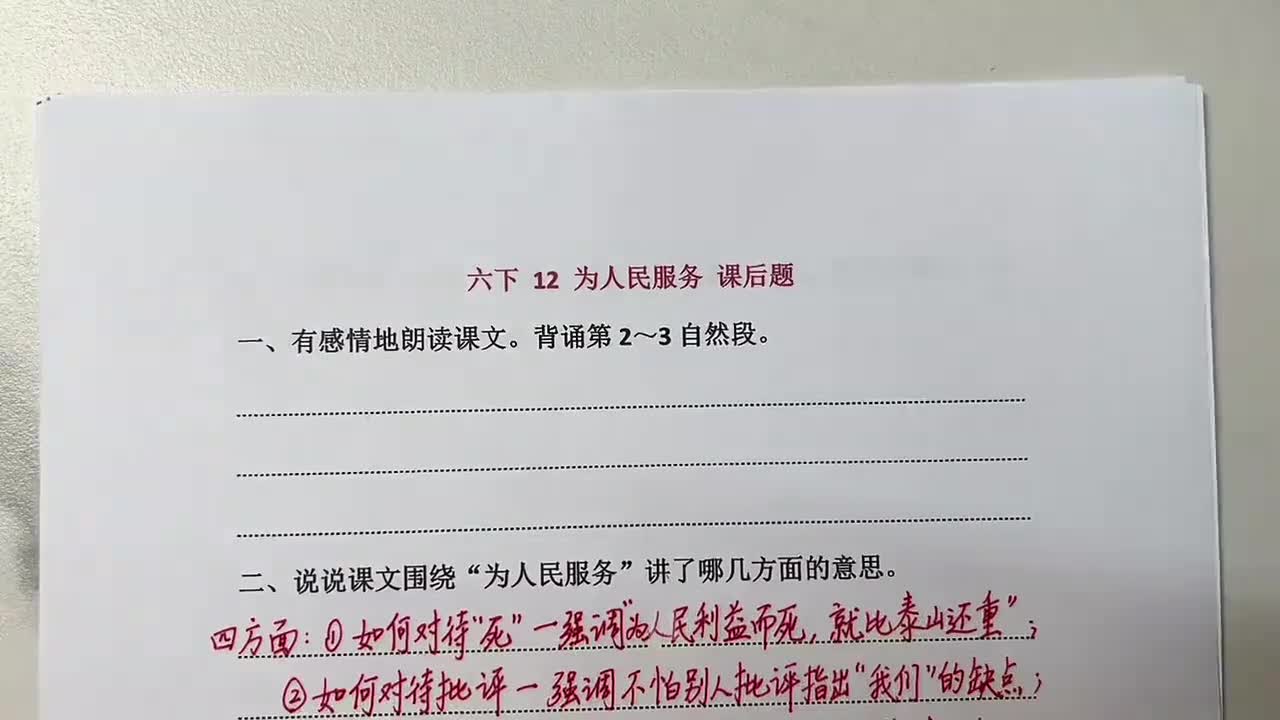 六下 12 为人民服务 课后题
一、有感情地朗读课文。背诵第 2～3 自然段。
二、说说课文围绕“为人民服务”讲了哪几方面的意思。
四方面：①如何对待“死”—强调“为人民利益而死，就比泰山还重”；
②如何对待批评—强调不怕别人批评指出“我们”的缺点；